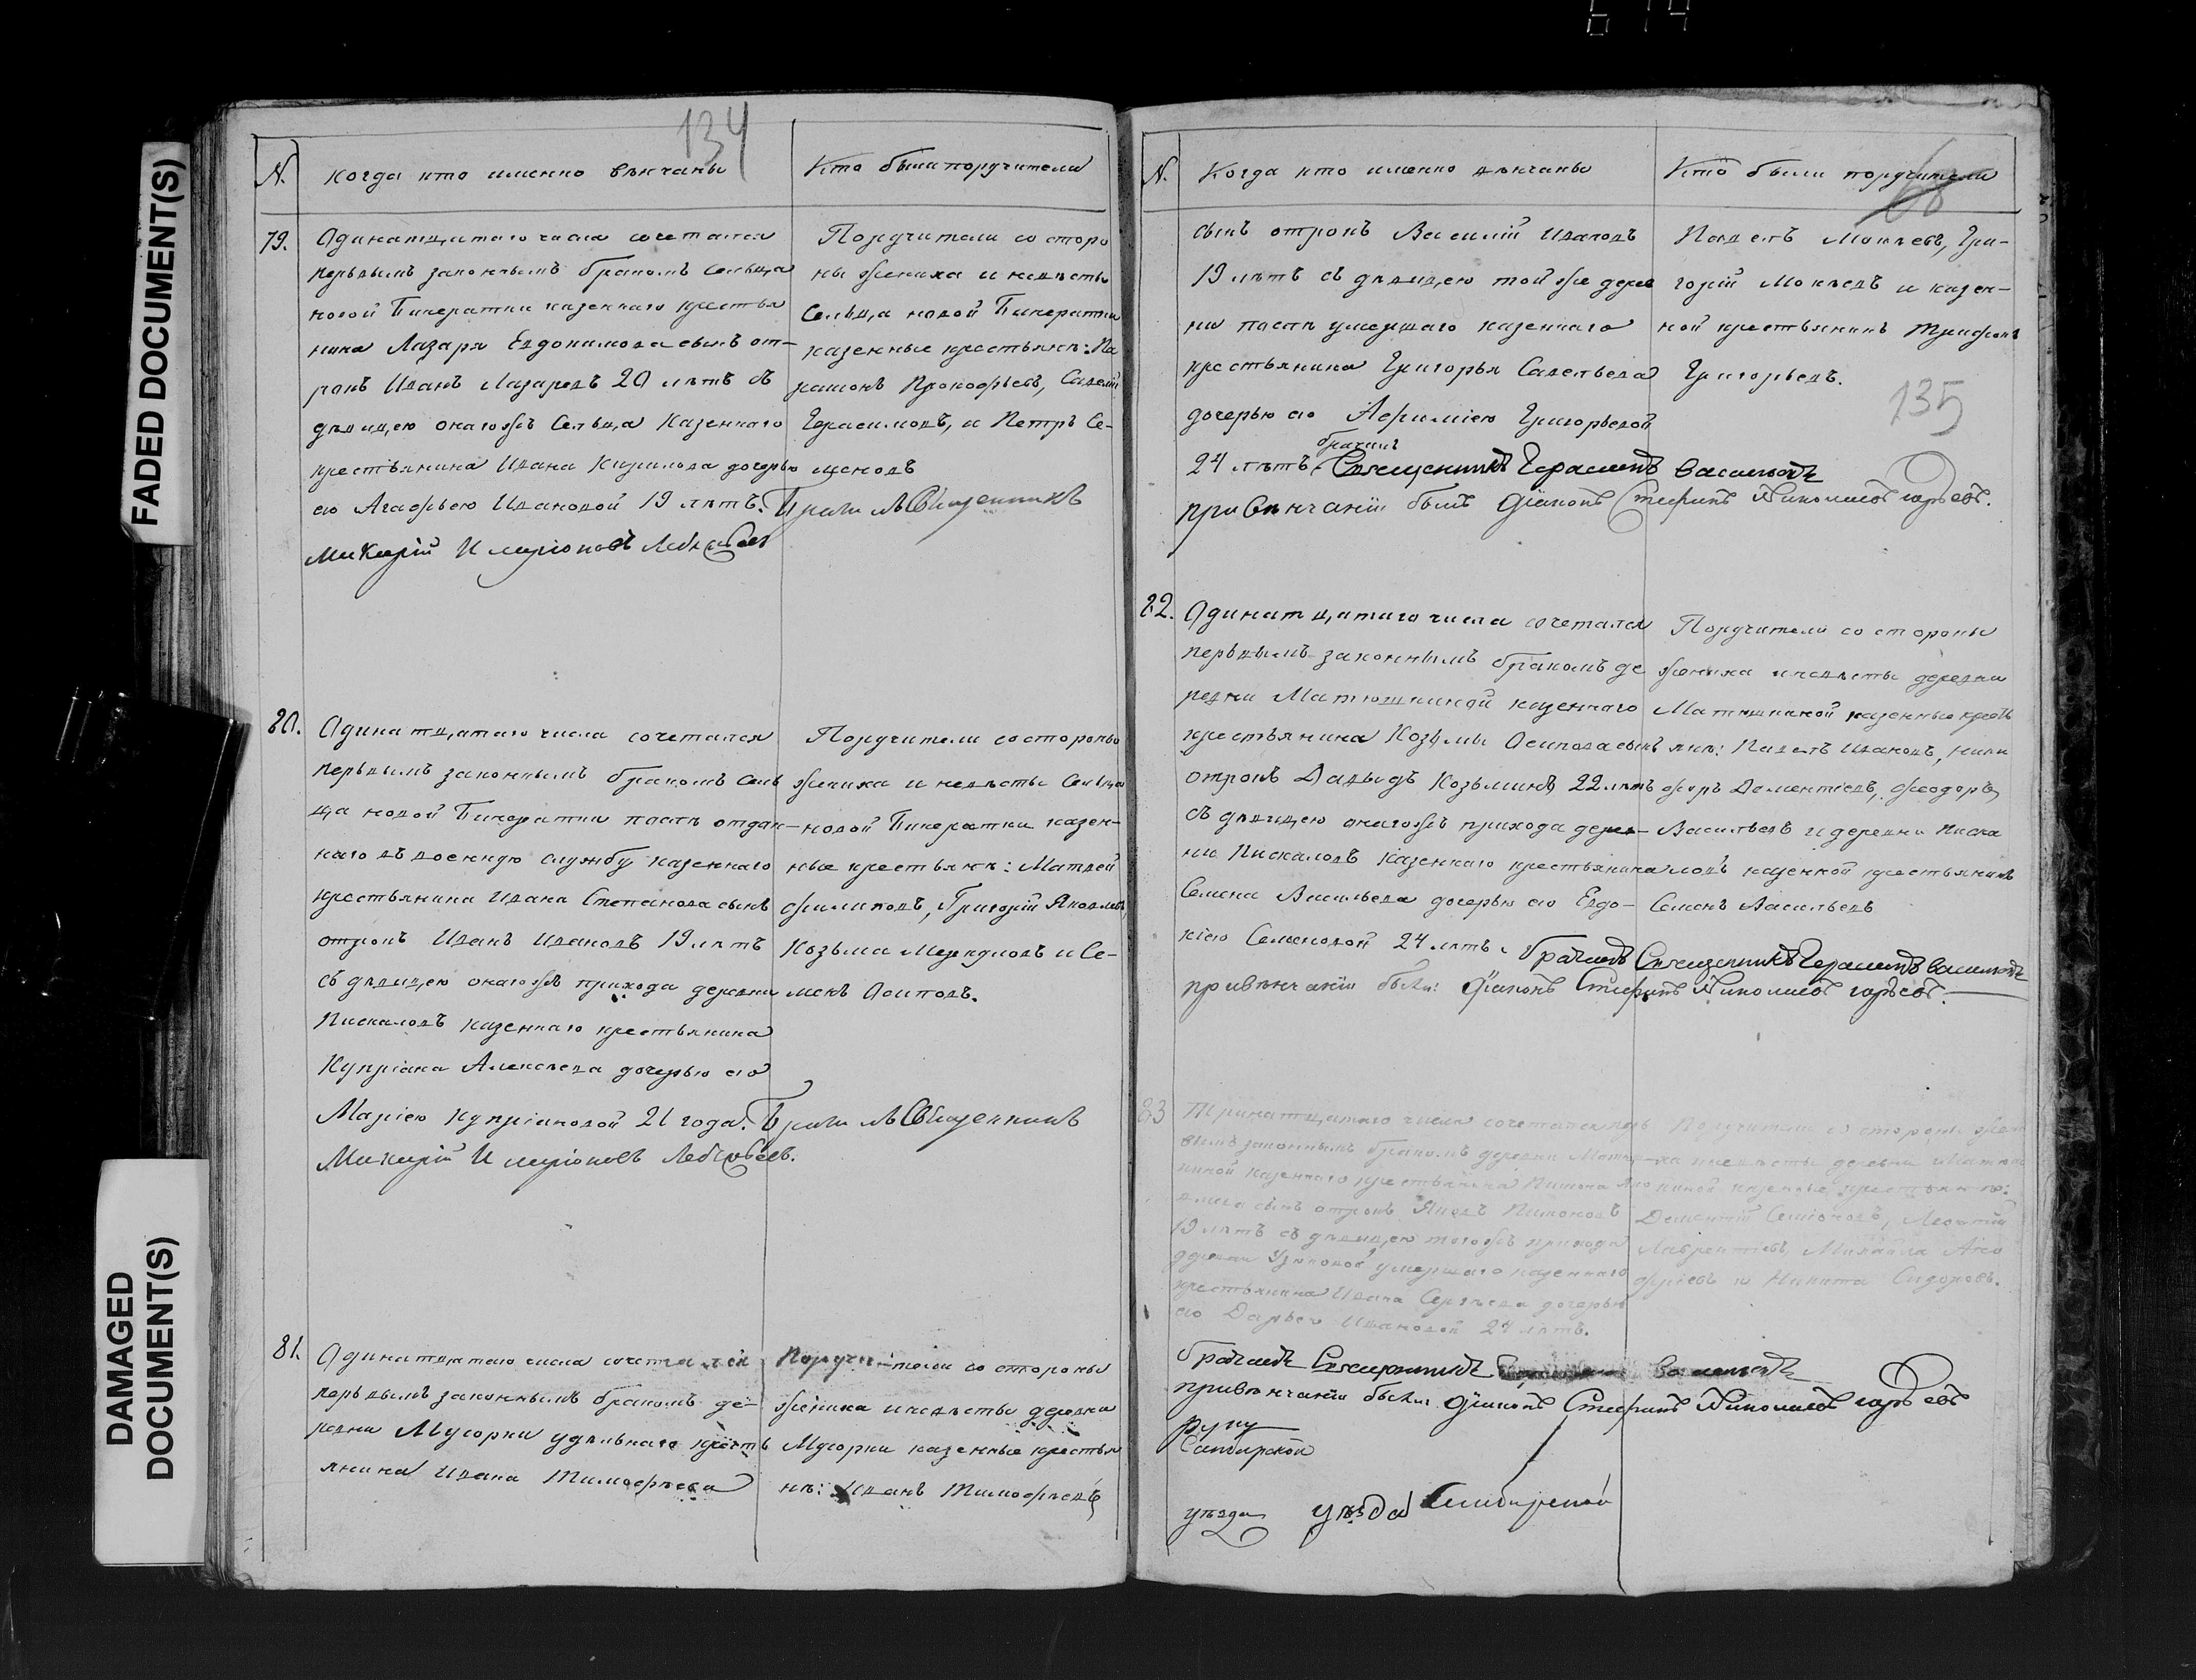 FADED DOCUMENT(S)
DAMAGED
DOCUMENT(S)
134
N.
когда кто именно вѣнчаны
Кто были поручители
79.
Одинатцатаго числа сочетался
первымъ законнымъ бракомъ Сельца
новой Бинератки казеннаго крестья
нина Лазаря Евдокимова сынъ от-
рокъ Иванъ Лазаревъ 20 лѣтъ съ
дѣвицею онагожъ Сельца Казеннаго
крестьянина Ивана Кирилова дочерью
ею Агафьею Ивановой 19 лѣтъ.
Поручители со сторо
ны жениха и невѣсты
Сельца новой Бинератки
казенные крестьянѣ: Па
рамонъ Прокофьевъ, Савелій
Герасимовъ, и Петръ Се-
меновъ
Священникъ
80.
Одинатцатаго числа сочетался
первымъ законнымъ бракомъ Сель
ца новой Бинератки пасть отдан-
наго въ военную службу казеннаго
крестьянина Ивана Степанова сынъ
отрокъ Иванъ Ивановъ 19 лѣтъ
съ дѣвицею онагожъ прихода деревни
Пискаловъ казеннаго крестьянина
Купріана Алексѣева дочерью ею
Маріею Купріановой 21 года.
Поручители со стороны
жениха и невѣсты Сельца
новой Бинератки казен-
ные крестьянѣ: Матвей
Филиповъ, Григорій Яковлевъ,
Козьма Меркуловъ и Се-
менъ Осиповъ.
Священникъ
81.
Одинатцатаго числа сочетался
первымъ законнымъ бракомъ де-
ревни Мусорки удѣльнаго кресть
янина Ивана Тимофѣева
Поручители со стороны
жениха и невѣсты деревни
Мусорки казенные крестья
нѣ: Иванъ Тимофѣевъ,
N.
Когда кто именно вѣнчаны
Кто были поручители
135
сынъ отрокъ Василій Ивановъ
19 лѣтъ съ дѣвицею той же дерев
ни пасть умершаго казеннаго
крестьянина Григорья Савельева
дочерью ею Афиміею Григорьевой
24 лѣтъ. Священникъ Герасимъ Васильевъ
при вѣнчаніи былъ Діаконъ Стефанъ
Павелъ Мокѣевъ, Гри-
горій Мокѣевъ и казен-
ной крестьянинъ Трифонъ
Григорьевъ.
82.
Одинатцатаго числа сочетался
первымъ законнымъ бракомъ де
ревни Матюшкиной казеннаго
крестьянина Козьмы Осипова сынъ
отрокъ Давыдъ Козьминъ 22 лѣтъ
съ дѣвицею онагожъ прихода дерев-
ни Пискаловъ казеннаго крестьянина
Семена Васильева дочерью ею Евдо-
кіею Семеновой 24 лѣтъ. Священникъ Герасимъ Васильевъ
при вѣнчаніи были: Діаконъ Стефанъ
Поручители со стороны
жениха и невѣсты деревни
Матюшкиной казенные кресть
янѣ: Павелъ Ивановъ, Ники
форъ Дементіевъ, Феодоръ
Васильевъ и деревни Писка
ловъ казенной крестьянинъ
Семенъ Васильевъ
83
Тринатцатаго числа сочетался пер
вымъ законнымъ бракомъ деревни Матюш-
киной казеннаго крестьянина
сынъ отрокъ Яковъ
19 лѣтъ съ дѣвицею тогожъ прихода
деревни Узюковой умершаго казеннаго
крестьянина Ивана Сергѣева дочерью
ею Дарьею Ивановой 24 лѣтъ.
Поручители со стороны жени
ха и невѣсты деревни Матюш
киной казенные крестьянѣ:
Дементій Семіоновъ, Леонтій
Лаврентіевъ, Михайла
и Никита Сидоровъ.
Священникъ
при вѣнчаніи были Діаконъ Стефанъ
руку
Симбирской
уѣзда уѣзда Симбирской